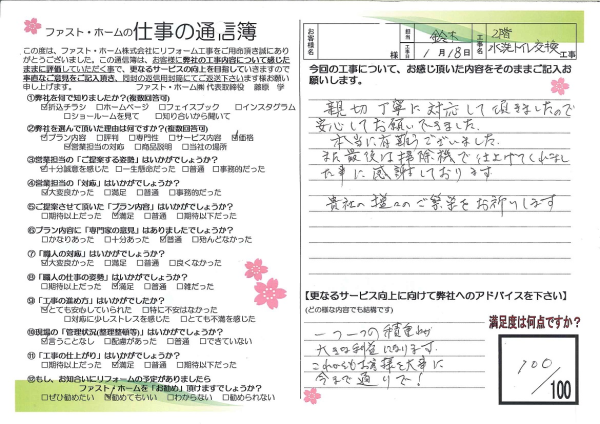 ファスト・ホームの仕事の通信簿
この度は、ファスト・ホーム株式会社にリフォーム工事をご用命頂き誠にあり
がとうございました。この通信簿は、お客様に弊社の工事内容について感じた
ままに評価していただく事で、更なるサービスの向上を目指していきますので
率直なご意見をご記入頂き、同封の返信用封筒にてご返送下さいます様お願い
申し上げます。 ファスト・ホーム㈱ 代表取締役 藤原 学
①弊社を何で知りましたか?(複数回答可)
☑折込チラシ □ホームページ □フェイスブック □インスタグラム
□ショールームを見て □知り合いから聞いて
②弊社を選んで頂いた理由は何ですか?(複数回答可)
☑プラン内容 □評判 □専門性 □サービス内容 ☑価格
☑営業担当の対応 □商品説明 □当社の場所
③営業担当の「ご提案する姿勢」はいかがでしょうか?
☑十分誠意を感じた □一生懸命だった □普通 □事務的だった
④営業担当の「対応」はいかがでしょうか?
☑大変良かった □満足 □普通 □事務的だった
⑤ご提案させて頂いた「プラン内容」はいかがでしょうか?
□期待以上だった ☑満足 □普通 □期待以下だった
⑥プラン内容に「専門家の意見」はありましたでしょうか?
□かなりあった □十分あった ☑普通 □殆んどなかった
⑦「職人の対応」はいかがでしょうか?
☑大変良かった □満足 □普通 □良くなかった
⑧「職人の仕事の姿勢」はいかがでしょうか?
□期待以上だった ☑満足 □普通 □雑だった
⑨「工事の進め方」はいかがでしたでしょうか?
☑とても安心していられた □特に不安はなかった
□対応に少しストレスを感じた □とても不満を感じた
⑩現場の「管理状況(整理整頓等)」はいかがでしょうか?
☑言うことなし □配慮があった □普通 □できていない
⑪「工事の仕上がり」はいかがでしたでしょうか?
☑大変良かった □期待以上だった □普通 □期待以下だった
⑫もし、お知合いにリフォームの予定がありましたら
ファスト・ホームを「お勧め」頂けますでしょうか?
□ぜひ勧めたい ☑勧めてもいい □わからない □勧められない
お客様名 様 担当 鈴木 工事日 1月18日 工事名 2階
水洗トイレ交換 工事
今回の工事について、お感じ頂いた内容をそのままご記入お
願いします。
親切丁寧に対応して頂きましたので
安心してお願いできました。
本当に有難うございました。
また最後は掃除機で仕上げてくれまし
た事に感謝しております
貴社の益々のご繁栄をお祈りします
【更なるサービス向上に向けて弊社へのアドバイスを下さい】
(どの様な内容でも結構です)
一つ一つの積重ねが
大きな利益になります。
これからもお客様を大事に
今まで通りで!
満足度は何点ですか?
100/100